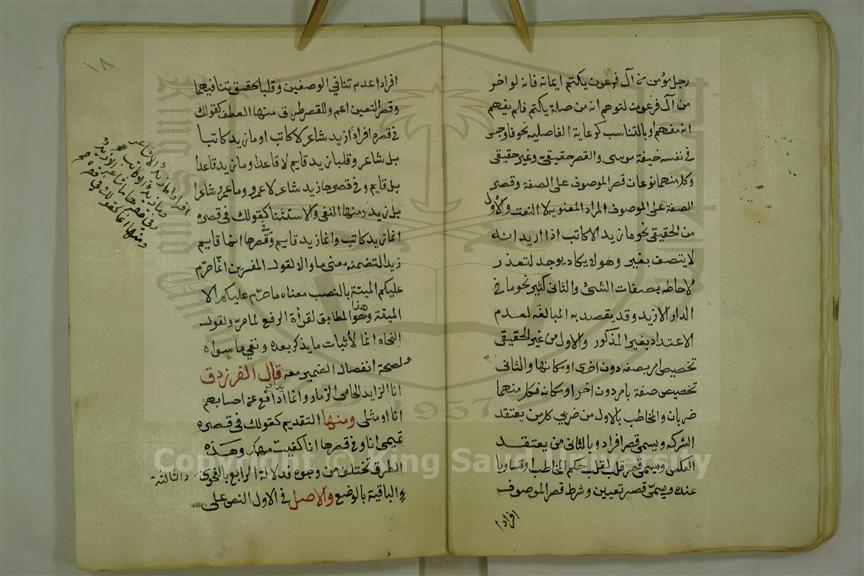 رجل مؤمن من آل فرعون يكتم ايمانه فانه لو اخر
من آل فرعون لتوهم انه من صلة يكتم فلم يفهم
انه منهم او بالتناسب كرعاية الفاصلة نحو فاوجس
في نفسه خيفة موسى والقصر حقيقي وغير حقيقي
وكل منهما نوعان قصر الموصوف على الصفة وقصر
الصفة على الموصوف المراد المعنوية لا النعت والاول
من الحقيقي نحو ما زيد الا كاتب اذا اريد انه
لا يتصف بغيرها وهو لا يكاد يوجد لتعذر
الاحاطه بصفات الشئ والثاني كثير نحو ما في
الدار الا زيد وقد يقصد به المبالغه لعدم
الاعتداد بغير المذكور والاول من غير الحقيقي
تخصيص امر بصفه دون اخرى او مكانها والثاني
تخصيص صفة بامر دون اخر او مكانه فكل منهما
ضربان والمخاطب بالاول من ضربي كل من يعتقد
الشركه ويسمى قصر افراد وبالثاني من يعتقد
العكس ويسمى قصر قلب لقلب حكم المخاطب او تساويا
عنده ويسمى قصر تعيين وشرط قصر الموصوف
افرادا
١٨
افرادا عدم تنافي الوصفين وقلبا تحقق تنافيهما
وقصر التعيين اعم وللقصر طرق منها العطف كقولك
في قصره افرادا زيد شاعر لا كاتب او ما زيد كاتبا
بل شاعر وقلبا زيد قايم لا قاعد او ما زيد قاعدا
بل قايم وفي قصرها زيد شاعر لا عمرو وما عمرو شاعرا
بل زيد ومنها النفي والاستثنا كقولك في قصره
انما زيد كاتب وانما زيد قايم وفي قصرها انما قايم
زيد لتضمنه معنى ما والا لقول المفسرين انما حرم
عليكم الميتة بالنصب معناه ما حرم عليكم الا
الميتة وهذا هو المطابق لقرأة الرفع لما مر ولقول
النحاه انما لاثبات ما يذكر بعده ونفي ما سواه
ولصحة انفصال الضمير معه قال الفرزدق
انا الزايد الحامي الزمار وانما يدافع عن احسابهم
انا او مثلي ومنها التقديم كقولك في قصره
تميمي انا وفي قصرها انا كفيت مهمك وهذه
الطرق تختلف من وجوه فدلالة الرابع بالفحوى
الباقية بالوضع والاصل في الاول النص على
والثالثة
افرادا ما زيد الا شاعر
وفي قصرها
ومنها انما كقولك في قصره